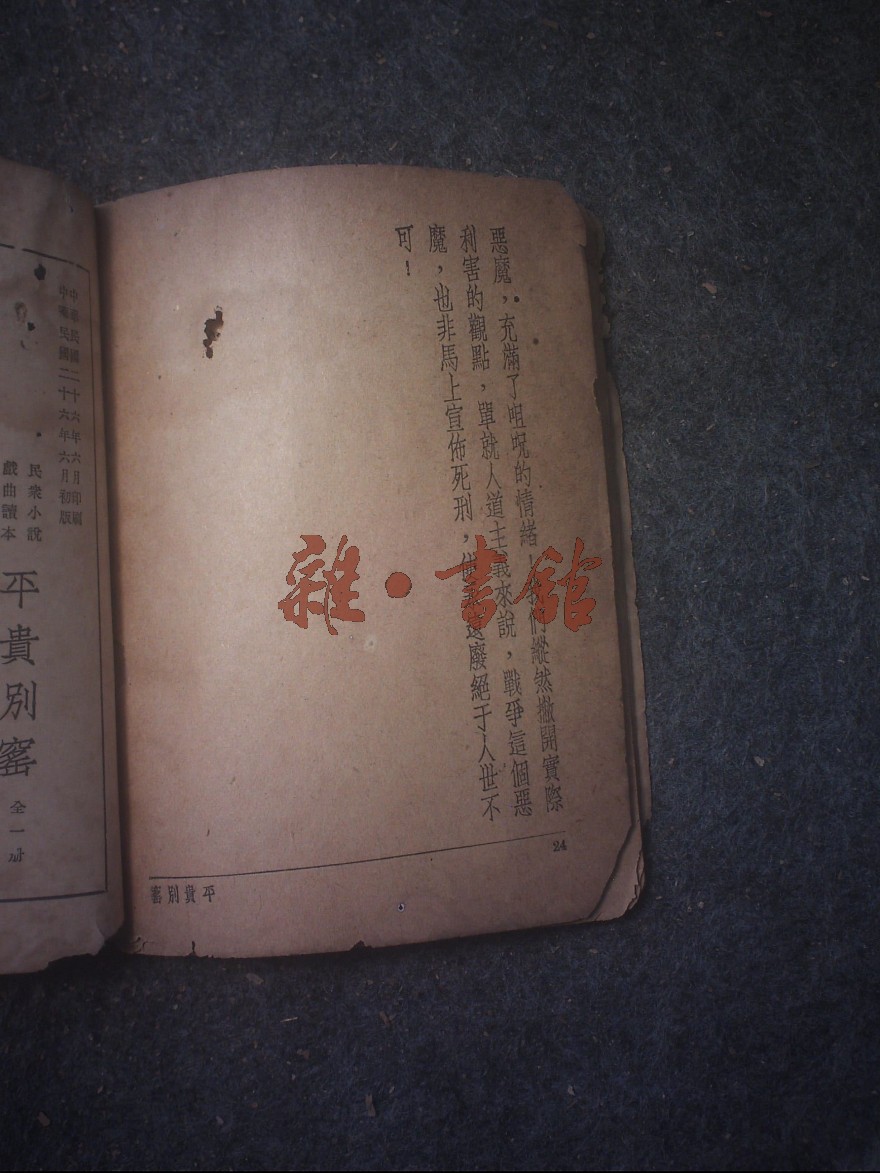 惡魔，充滿了咀呪的情緒！我們縱然撇開實際
利害的觀點，單就人道主義來說，戰爭這個惡
魔，也非馬上宣佈死刑，廢絕于人世不
可！
24
平貴別窰
中華民國二十六年六月印刷
中華民國二十六年六月初版
民衆小說
戲曲讀本
平貴別窰
全一册
雜·書館